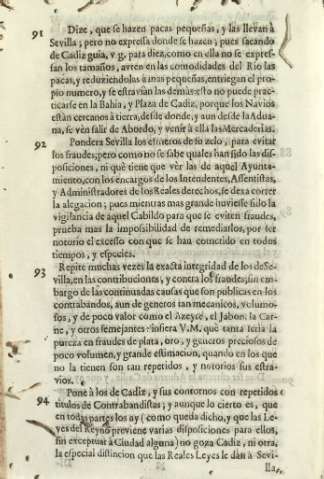 91 Dize, que se hazen pacas pequeñas, y las llevan à
Sevilla; pero no expressa donde se hazen; pues sacando
de Cadiz guia, v. g. para diez, como en ella no se expres-
san los tamaños, avren en las comodidades del Rio las
pacas, y reduziendolas à mas pequeñas, entriegan el pro-
pio numero, y se estravìan las demàs: esto no puede prac-
ticarse en la Bahia, y Plaza de Cadiz, porque los Navios
estàn cercanos à tierra, desde donde, y aun desde la Adua-
na, se vèn salir de Abordo, y venir à ella las Mercaderias.
92 Pondera Sevilla los esmeros de su zelo, para evitar
los fraudes; pero como no se sabe quales han sido las dis-
posiciones, ni què tiene que vèr las de aquel Ayunta-
miento, con los encargos de los Intendentes, Assentistas,
y Administradores de los Reales derechos, se dexa correr
la alegacion; pues mientras mas grande huviesse sido la
vigilancia de aquel Cabildo para que se eviten fraudes,
prueba mas la impossibilidad de remediarlos, por ser
notorio el excesso con que se han cometido en todos
tiempos, y especies.
93 Repite muchas vezes la exacta integridad de los de Se-
villa, en las contribuciones, y contra los fraudes; sin em-
bargo de las continuadas causas que son publicas en los
contrabandos, aun de generos tan mecanicos, volumo-
sos, y de poco valor como el Azeyte, el Jabon, la Car-
ne, y otros semejantes: infiera V.M. què tanta serìa la
pureza en fraudes de plata, oro, y generos preciosos de
poco volumen, y grande estimacion, quando en los que
no la tienen son tan repetidos, y notorios sus estra-
vios.
94 Pone à los de Cadiz, y sus contornos con repetidos
titulos de Contrabandistas; y aunque lo cierto es, que
en todas partes los ay (como queda dicho, y que las Le-
yes del Reyno previene varias disposiciones para ellos,
sin exceptuar à Ciudad alguna) no goza Cadiz, ni otra,
la especial distincion que las Reales Leyes le dàn à Sevi-
lla,